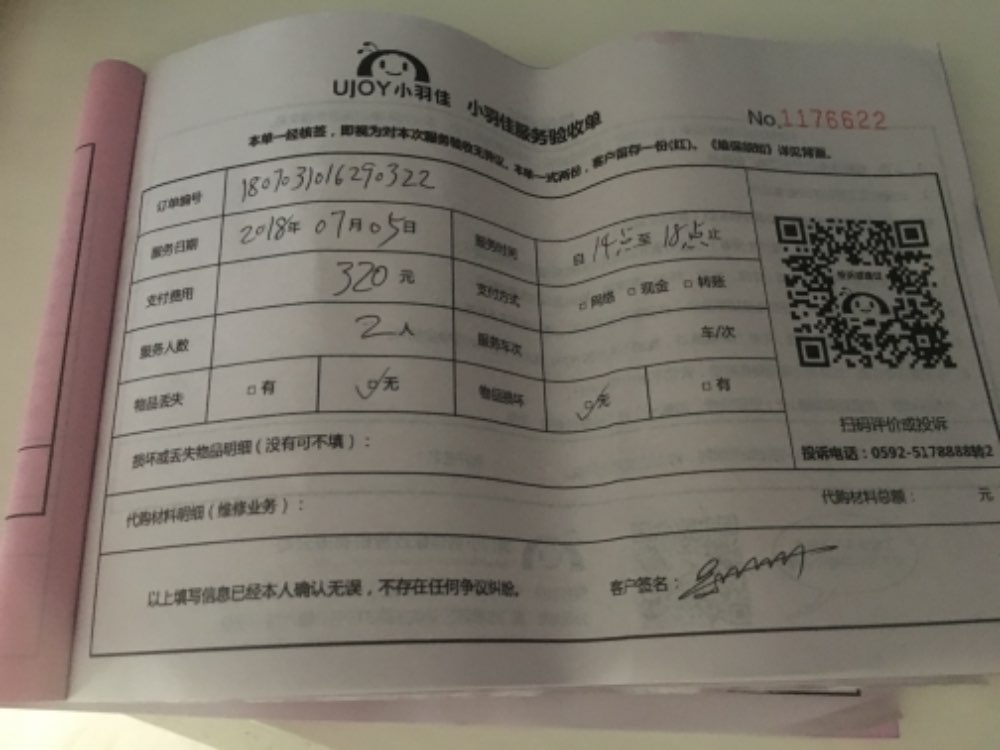 UJOY小羽佳 小羽佳服务验收单
No.1176622
本单一经核签,即视为对本次服务验收无异议。本单一式两份,客户留存一份(红)。《维保须知》详见背面。
订单编号 1807031016290322
服务日期 2018年 07月 05日 服务时间 自 14点 至 18点 止
支付费用 320 元 支付方式 □ 网络 □ 现金 □ 转账
服务人数 2 人 服务车次 车/次
物品丢失 □ 有 □ 无 物品损坏 □ 无 □ 有
扫码评价或投诉
投诉电话:0592-5178888转2
损坏或丢失物品明细(没有可不填):
代购材料明细(维修业务): 代购材料总额: 元
以上填写信息已经本人确认无误,不存在任何争议纠纷。 客户签名: